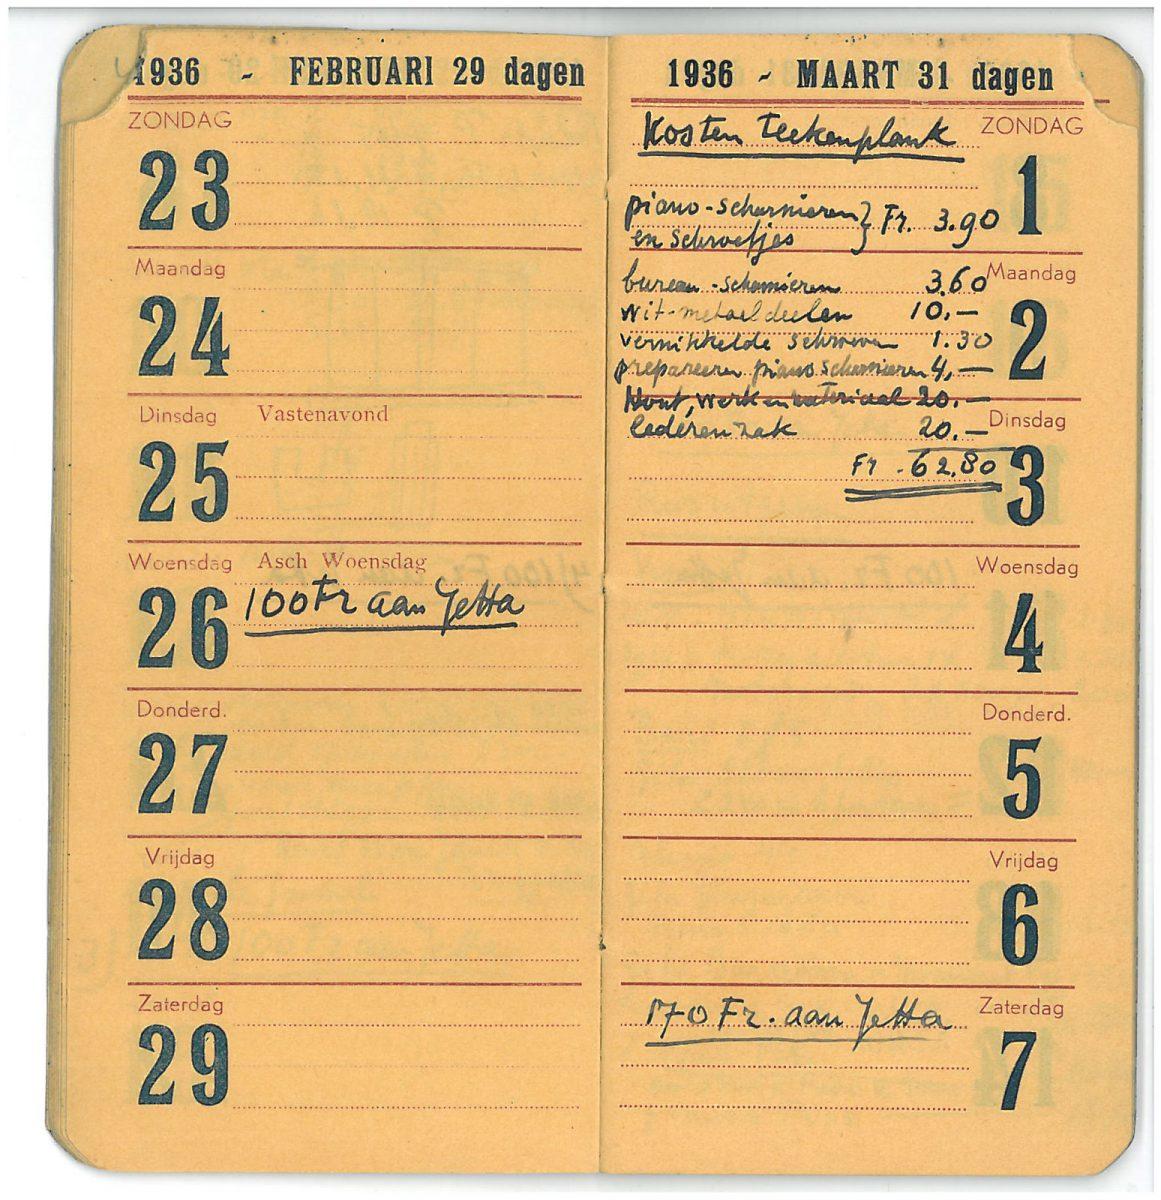 1936 - FEBRUARI 29 dagen
ZONDAG
23
Maandag
24
Dinsdag Vastenavond
25
Woensdag Asch Woensdag
26 100 Fr aan Jetta
Donderd.
27
Vrijdag
28
Zaterdag
29
1936 - MAART 31 dagen
Kosten Teekenplank ZONDAG
1
piano-scharnieren } Fr. 3.90
en schroefjes
Maandag
bureau-scharnieren 3.60
2
wit-metaal deelen 10,-
vernikkelde schroeven 1.30
prepareeren piano scharnieren 4,-
Hout, werk en materiaal 20.-
Dinsdag
lederen zak 20.-
3
Fr. 62.80
Woensdag
4
Donderd.
5
Vrijdag
6
170 Fr. aan Jetta Zaterdag
7